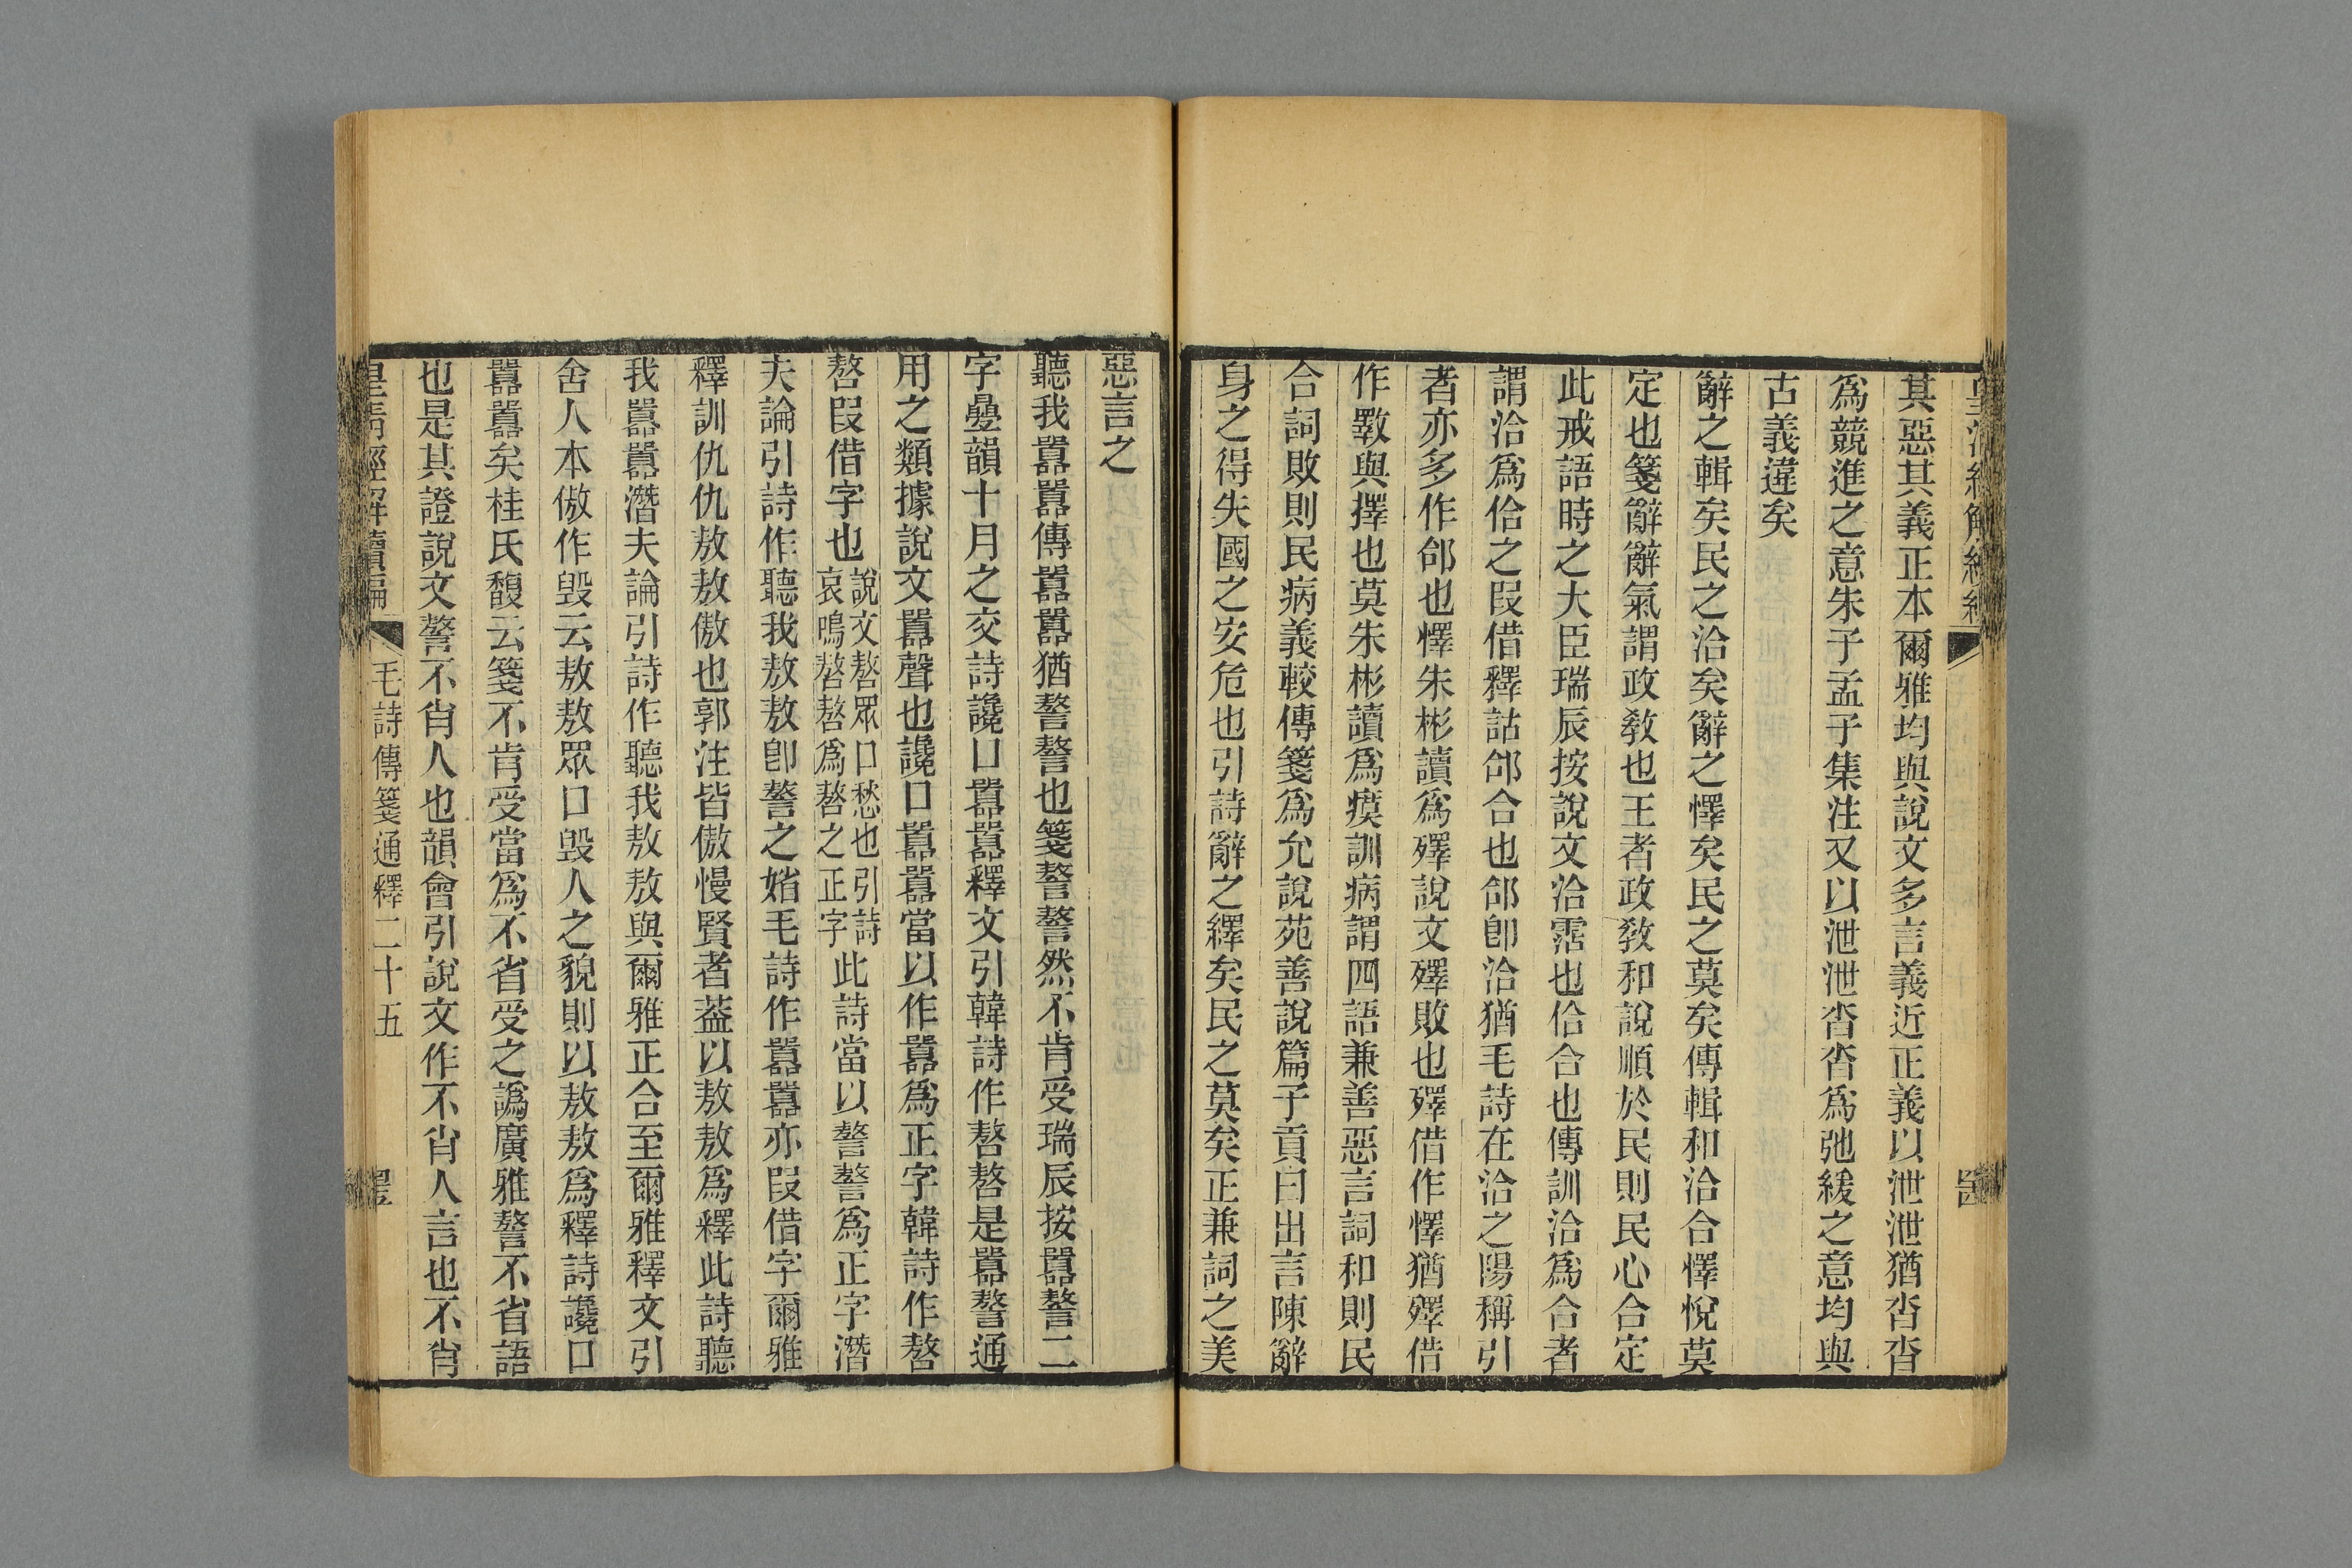 其惡其義正本爾雅均與說文多言義近正義以泄泄猶沓沓
爲競進之意朱子孟子集注又以泄泄沓沓爲弛緩之意均與
古義違矣
辭之輯矣民之洽矣辭之懌矣民之莫矣傳輯和洽合懌悅莫
定也箋辭辭氣謂政敎也王者政敎和說順於民則民心合定
此戒語時之大臣瑞辰按說文洽霑也佮合也傳訓洽爲合者
謂洽爲佮之叚借釋詁郃合也郃卽洽猶毛詩在洽之陽稱引
者亦多作郃也懌朱彬讀爲殬說文殬敗也殬借作懌猶殬借
作斁與擇也莫朱彬讀爲瘼訓病謂四語兼善惡言詞和則民
合詞敗則民病義較傳箋爲允說苑善說篇子貢曰出言陳辭
身之得失國之安危也引詩辭之繹矣民之莫矣正兼詞之美
惡言之
聽我囂囂傳囂囂猶謷謷也箋謷謷然不肯受瑞辰按囂謷二
字疊韻十月之交詩讒口囂囂釋文引韓詩作嗸嗸是囂謷通
用之類據說文囂聲也讒口囂囂當以作囂爲正字韓詩作嗸
嗸叚借字也說文嗸眾口愁也引詩哀鳴嗸嗸爲嗸之正字此詩當以謷謷爲正字潛
夫論引詩作聽我敖敖卽謷之媘毛詩作囂囂亦叚借字爾雅
釋訓仇仇敖敖傲也郭注皆傲慢賢者葢以敖敖爲釋此詩聽
我囂囂潛夫論引詩作聽我敖敖與爾雅正合至爾雅釋文引
舍人本傲作毀云敖敖眾口毀人之貌則以敖敖爲釋詩讒口
囂囂矣桂氏馥云箋不肯受當爲不省受之譌廣雅謷不省語
也是其證說文謷不肖人也韻會引說文作不肖人言也不肖
皇清經解續編 毛詩傳箋通釋二十五